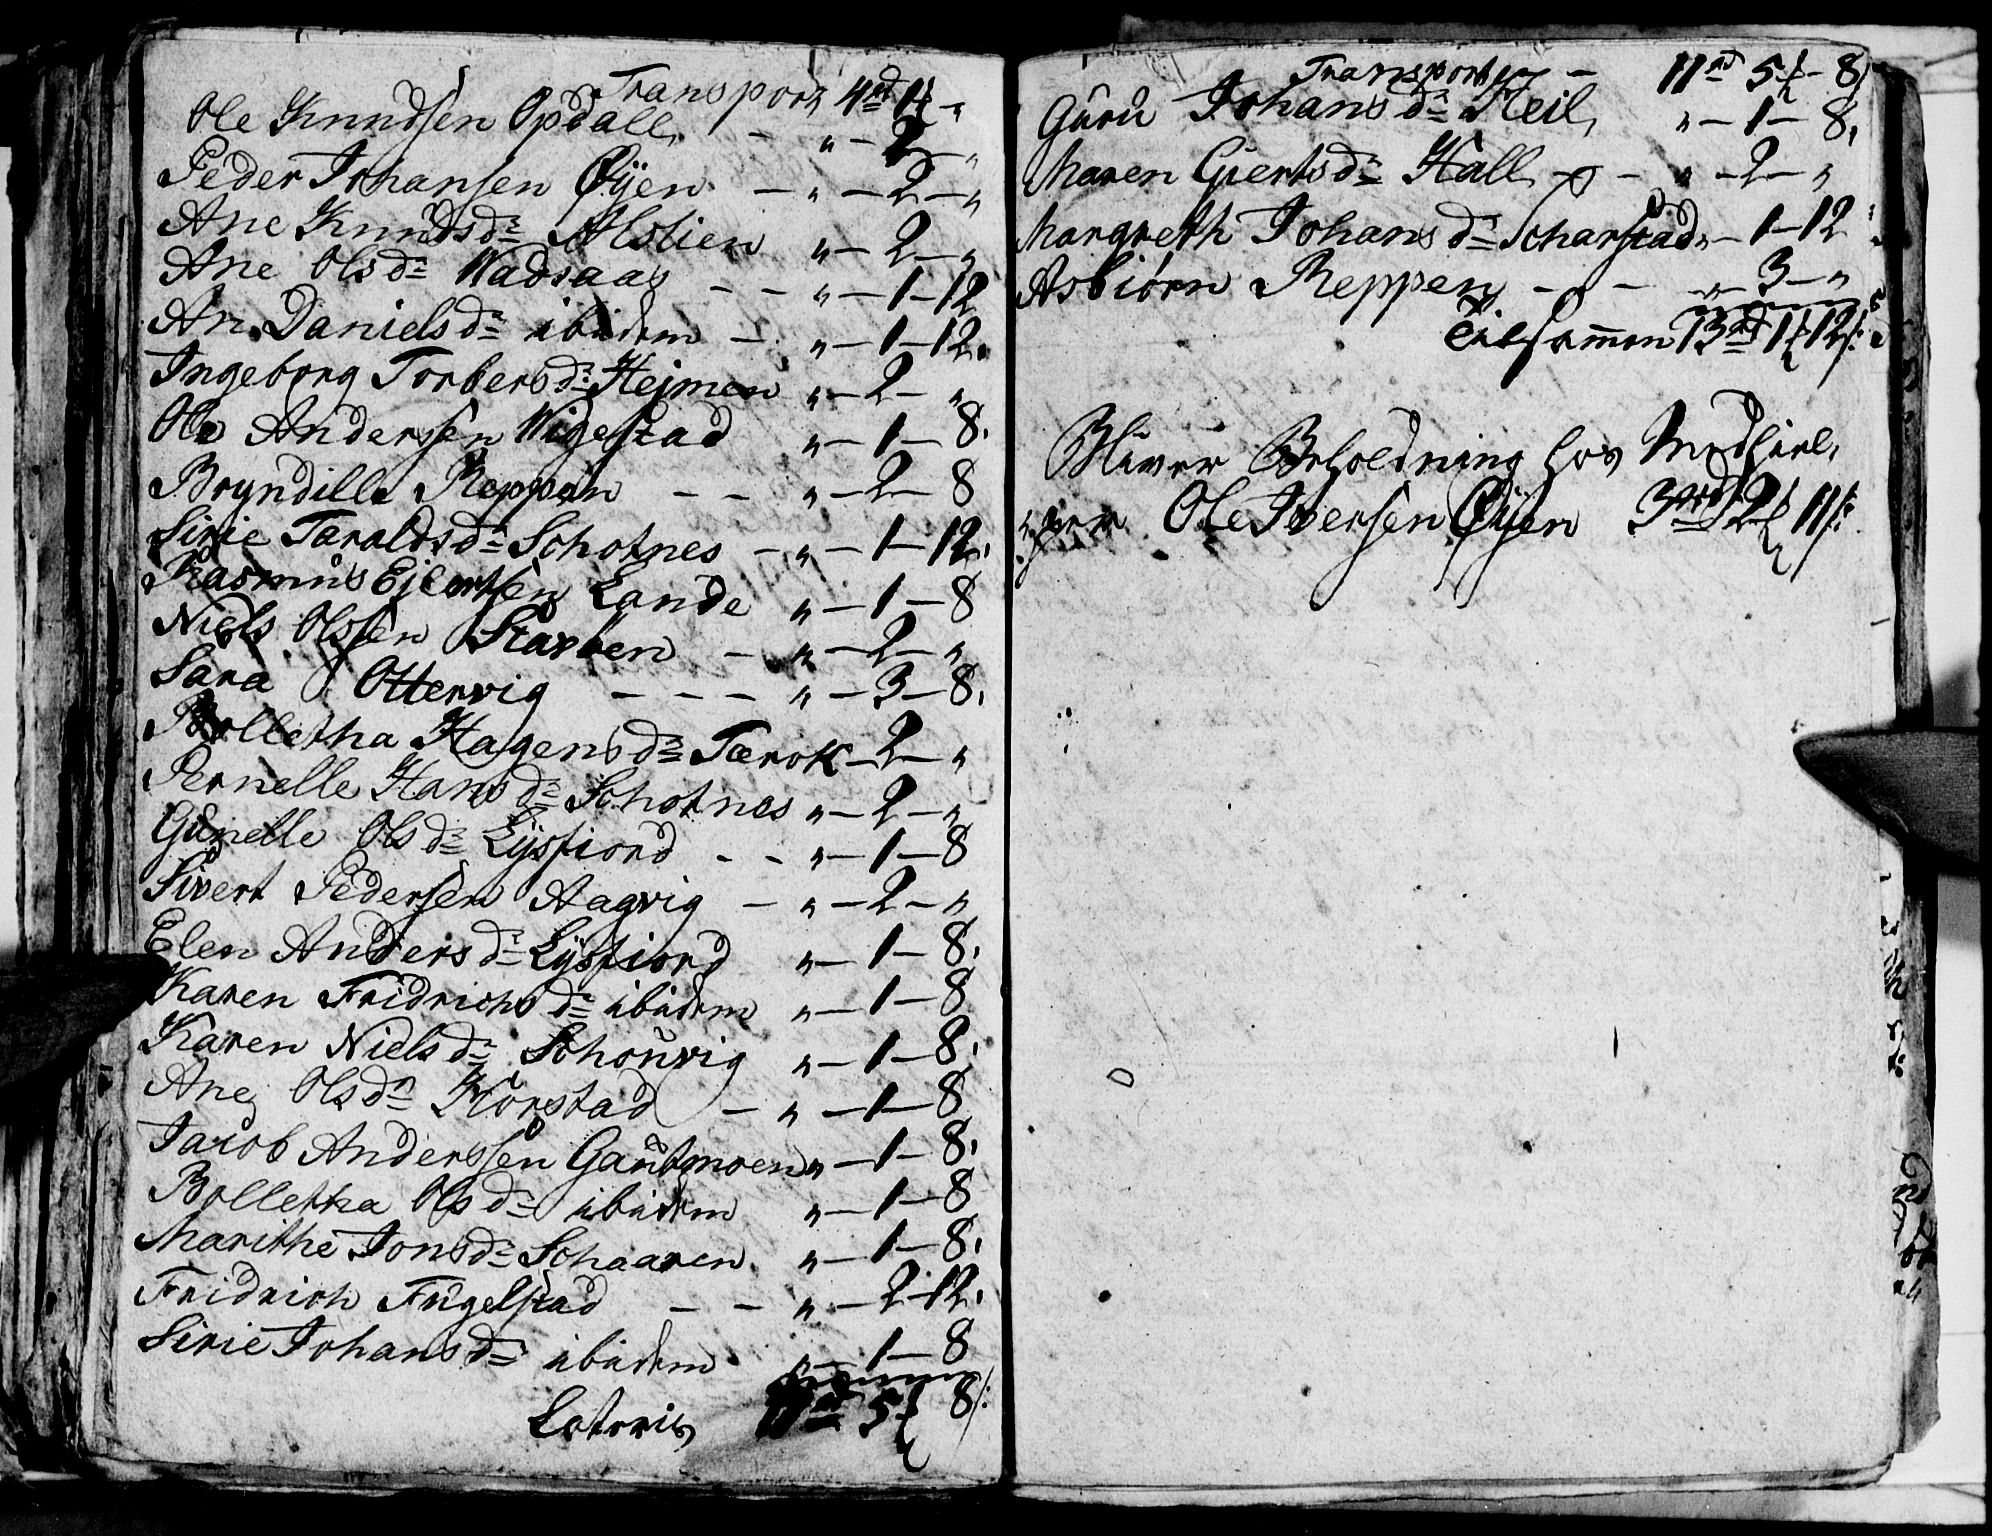 Transport 4rd 4 "
Ole Knudsen Opdall - " - 2 - "
Peder Johansen Øÿen - " - 2 - "
Ane Knudsdr Alstien " - 2 - "
Ane Olsdr Wadsaas - - " - 1 - 12
An. Danielsdr ibidem - " - 1 - 12.
Ingeborg Torbersdr Hejmen " - 2 - "
Ole Andersen Wigestad " - 1 - 8.
Bryndille Reppen - - " - 2 - 8
Sirie Taraldsdr Schotnes - " - 1 - 12.
Rasmus Ejlertsen Lande " - 1 - 8
Niels Olssen Starben - " - 2 - "
Sara Ottervig - - - " - 3 - 8.
Bolletha Hagensdr Tærok - 2 - "
Pernelle Hansdr Schotnes " - 2 - "
Gunelle Olsdr Lÿsfiord - - " - 1 - 8
Sivert Pedersen Aagvig - " - 2 - "
Elen Andersdr Lÿsfiord " - 1 - 8.
Karen Fridrichsdr ibidem " - 1 - 8
Karen Nielsdr Schonvig " - 1 - 8.
Ane Olsdr Korstad - " - 1 - 8
Jacob Anderssen Gautmoen " - 1 - 8.
Bolletha Olsdr ibidem " - 1 - 8
Marithe Jonsdr Schaaren " - 1 - 8.
Fridrich Fugelstad - - " - 2 - 12.
Sirie Johansdr ibidem " - 1 - 8
Lateris 11rd 5 8/:
Transport - 11rd 5 - 8
Guru Johansdr Heil " - 1 - 8.
Maren Giertsdr Hall - - " - 2 - "
Margreth Johansdr Scharstad " - 1 - 12
Asbiørn Reppen - - - " - 3 - "
Tilsammen 13rd 1 12/:
Bliver Beholdning hos Medhiel,,
,,per Ole Iversen Øÿen 3rd 2 11/: